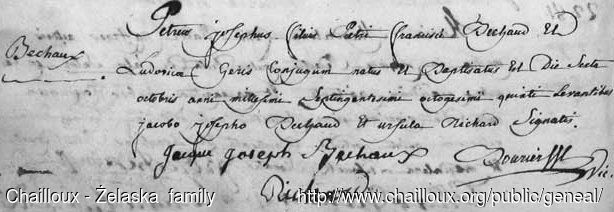 Petrus josephus filius Petri francisci Bechaud Et
Bechaux
Ludovica Geris Conjugum natus Et Baptisatus Est Die Sexta
octobris anni millesimi Septingentesimi octogesimi quinti Levantibus
jacobo josepho Bechaud Et ursula Richard Signatis.
Jacque joseph Bechaux
Richard
Chailloux - Żelaska family
http://www.chailloux.org/public/geneal/